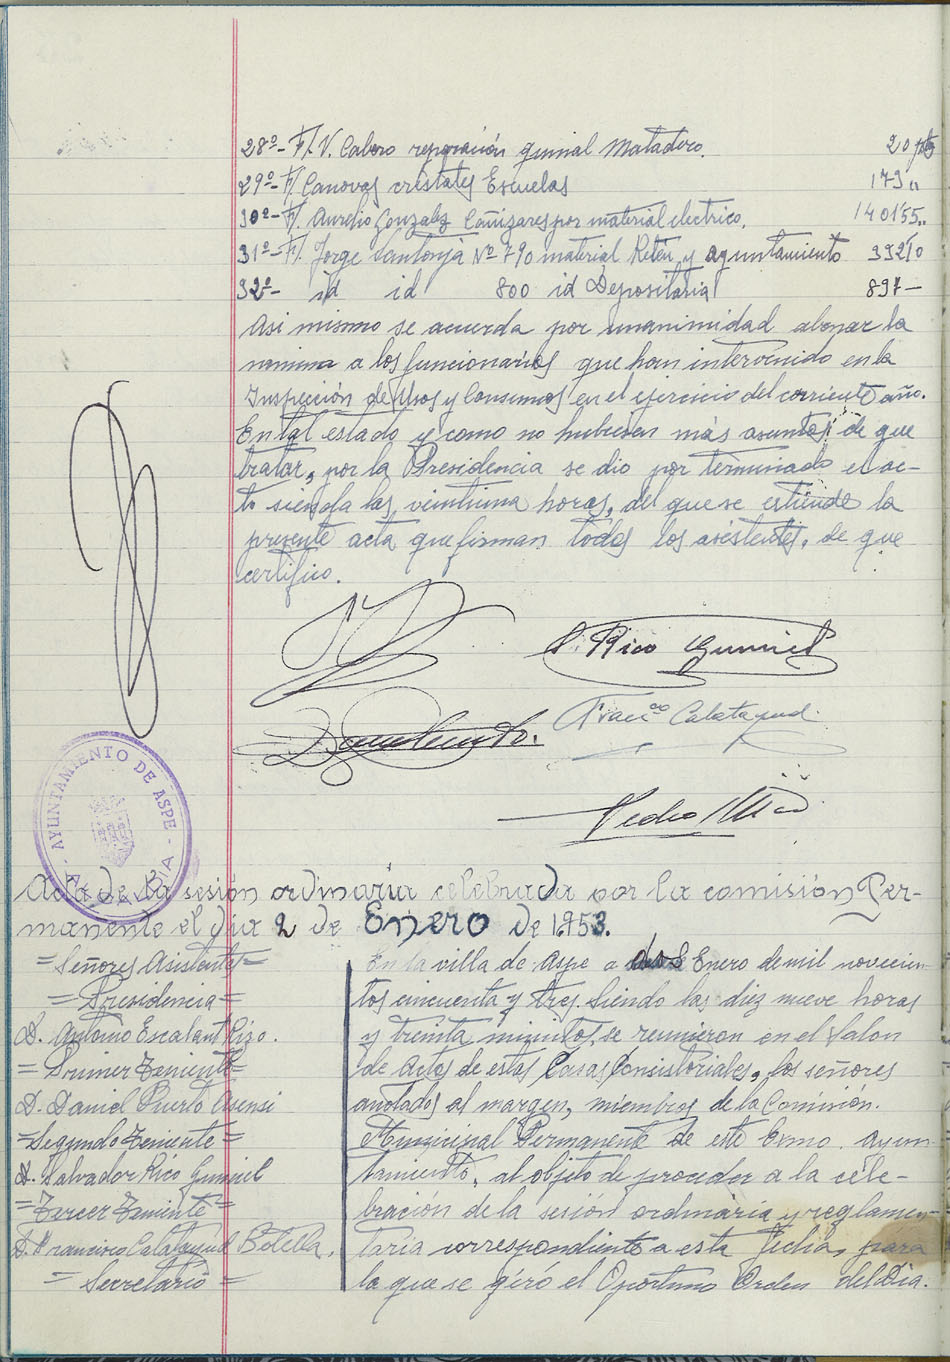 28º- F/. V. Calero reparación quinal Matadero. 20 ptas
29º- F/ Canovas cristales Escuelas 173 "
30º- F/. Aurelio Gonzalez Cañizares por material electrico, 1401'55 "
31º- F/. Jorge Santonja Nº 790 material Reten y ayuntamiento 332'10
32º- id id 800 id Depositaria 897 —
Asi mismo se acuerda por unanimidad abonar la
nomina a los funcionarios que han intervenido en la
Inspección de Usos y Consumos en el ejercicio del corriente año.
En tal estado y como no hubiesen más asuntos de que
tratar, por la Presidencia se dio por terminado el ac-
to siendo las veintiuna horas, del que se extiende la
presente acta que firman todos los asistentes, de que
certifico.
S. Rico Gumiel
Franco Calatayud
AYUNTAMIENTO DE ASPE - ALCALDIA -
Acta de la sesión ordinaria celebrada por la comisión Per-
manente el dia 2 de Enero de 1.953.
=Señores Asistentes=
=Presidencia=
D. Antonio Escalant Rizo.
=Primer Teniente=
D. Daniel Puerto Asensi
=Segundo Teniente=
D. Salvador Rico Gumiel
=Tercer Teniente=
D. Francisco Calatayud Botella.
= Secretario =
En la villa de Aspe a dos Enero de mil novecien-
tos cincuenta y tres. Siendo las diez nueve horas
y treinta minutos, se reunieron en el Salon
de Actos de estas Casas Consistoriales, los señores
anotados al margen, miembros de la Comisión.
Municipal Permanente de este Exmo. Ayun-
tamiento, al objeto de proceder a la cele-
bración de la sesión ordinaria y reglamen-
taria correspondiente a esta fecha, para
la que se giró el Oportuno Orden del Dia.